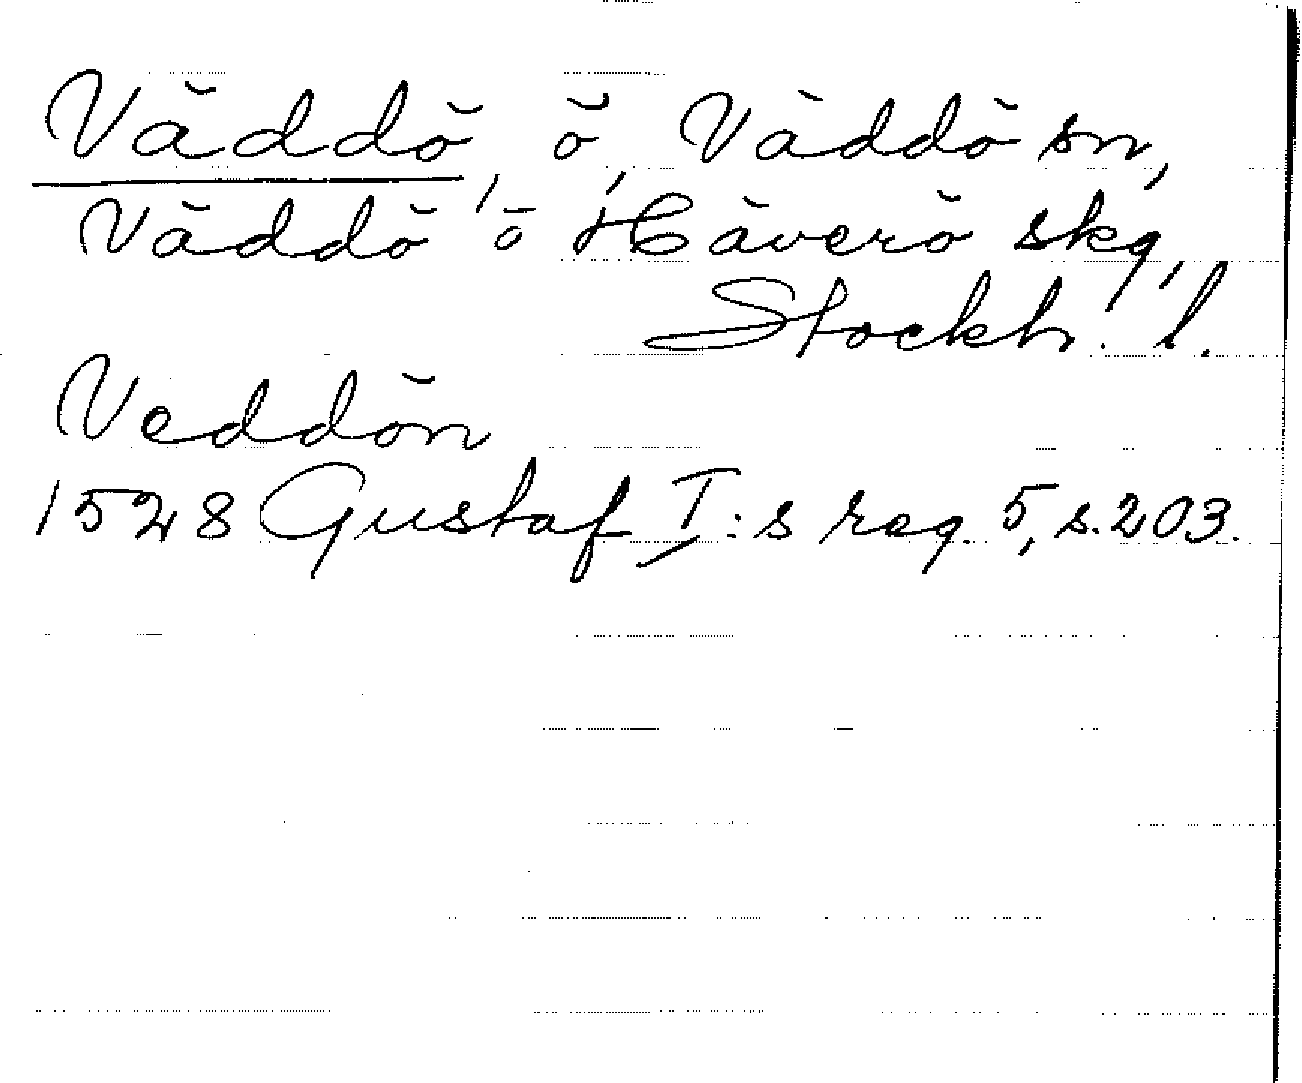 Väddö, ö, Väddö sn,
Väddö o Häverö skg,
Stockh. l.
Veddön
1528 Gustaf I:s reg. 5, s. 203.